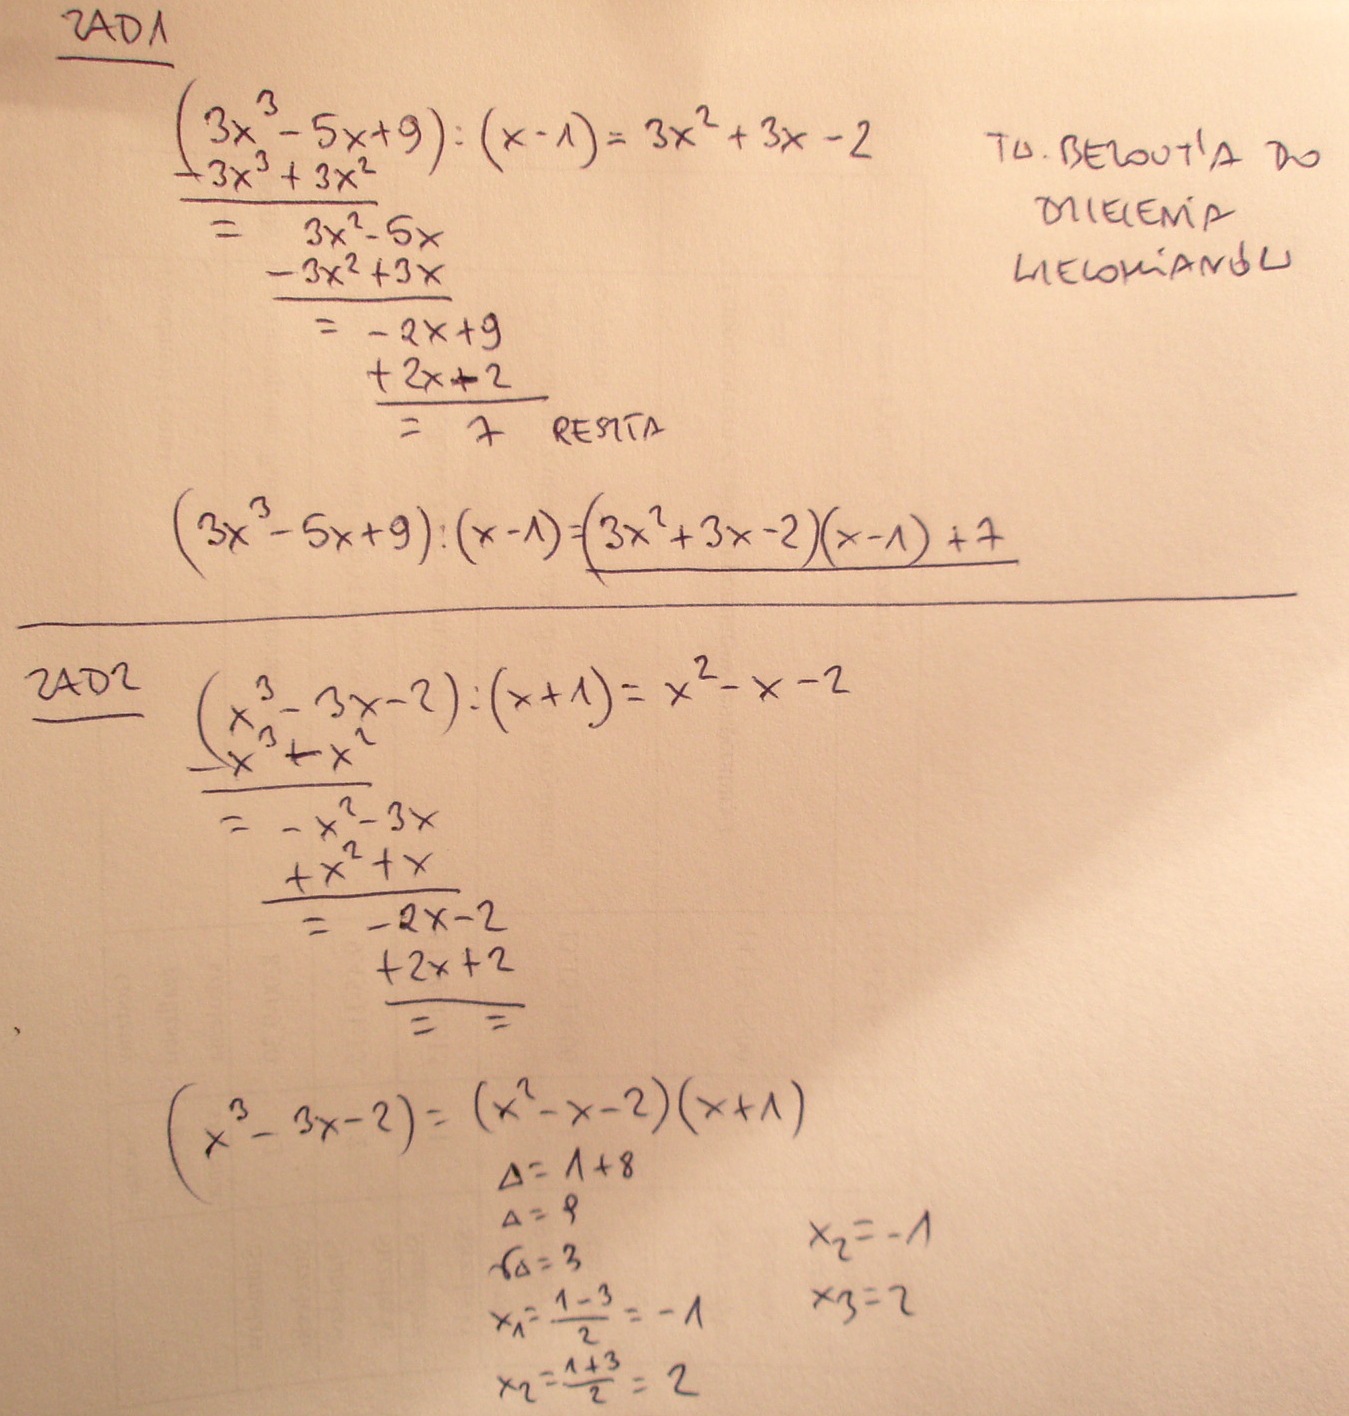 ZAD1
(3x³ - 5x + 9) : (x - 1) = 3x² + 3x - 2
-3x³ + 3x²
= 3x² - 5x
-3x² + 3x
= -2x + 9
+2x - 2
= 7 RESZTA
TW. BEZOUT'A DO
DZIELENIA
WIELOMIANÓW
(3x³ - 5x + 9) : (x - 1) = (3x² + 3x - 2)(x - 1) + 7
ZAD2
(x³ - 3x - 2) : (x + 1) = x² - x - 2
-x³ - x²
= -x² - 3x
+x² + x
= -2x - 2
+2x + 2
= =
(x³ - 3x - 2) = (x² - x - 2)(x + 1)
Δ = 1 + 8
Δ = 9
√Δ = 3
x₁ = (1 - 3)/2 = -1
x₂ = (1 + 3)/2 = 2
x₂ = -1
x₃ = 2